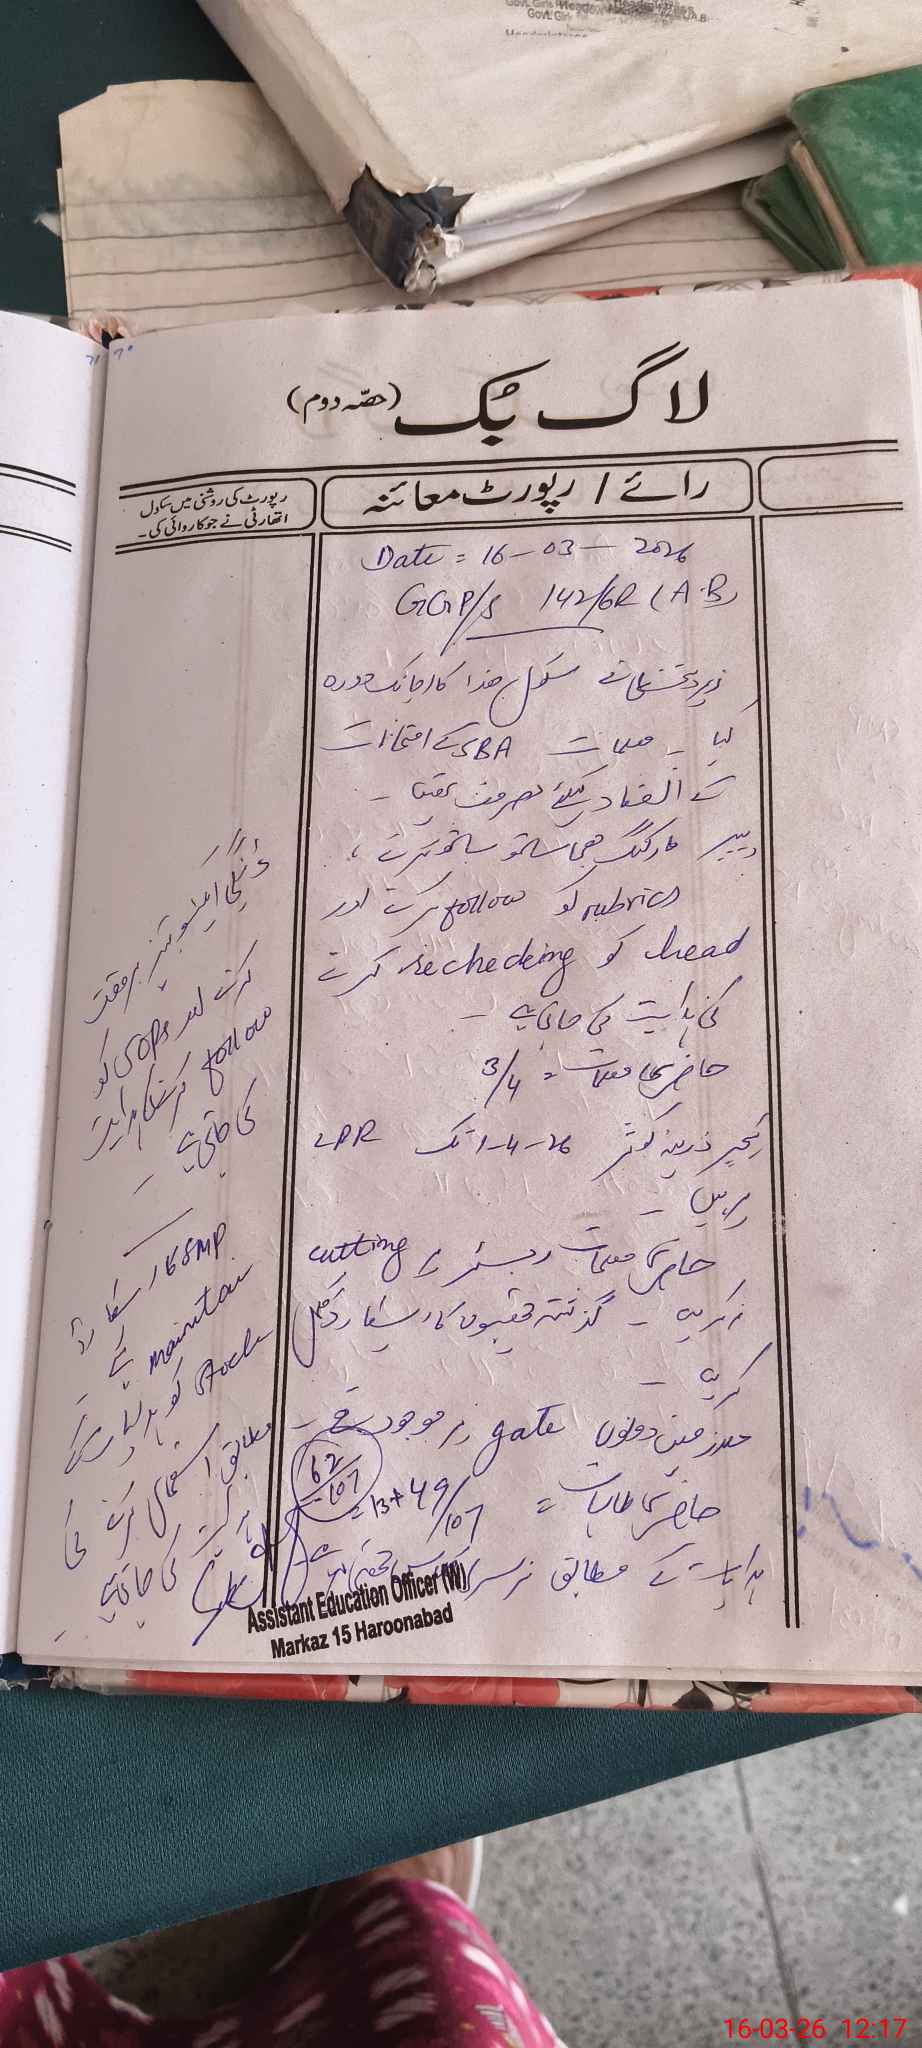 Govt. Girls
لاگ بُک (حصّہ دوم)
رائے / رپورٹ معائنہ
رپورٹ کی روشنی میں سکول
اتھارٹی نے جو کاروائی کی۔
Date = 16-03-2026
GGP/S 142/6R (A.B)
زیر دستخطی نے سکول ھذا کا اچانک دورہ
کیا ۔ معلمات SBA کے امتحانات
کے انعقاد کیلئے مصروف تھیں ۔
پیپر مارکنگ بھی ساتھ ساتھ کرنے ،
rubrics کو follow کرنے اور
head کو rechecking کرنے
کی ہدایت کی جاتی ہے ۔
حاضری معلمات = 3/4
ٹیچر کوثر 1-4-26 تک LPR
پر ہیں ۔
حاضری معلمات رجسٹر پر cutting
نہ کریں ۔ گذشتہ کا ریکارڈ مکمل
کریں ۔
دونوں gate پر موجود تھے ۔
حاضری طالبات = 13+49/107 =
62/107
ہدایات کے مطابق نرسری
ایکٹیویٹیز بروقت
کرنے اور SOPs کو
follow کرنے کی ہدایت
کی جاتی ہے ۔
SMP کا ریکارڈ
maintain کریں ۔
Stock کو ہدایات کے
مطابق استعمال کرنے کی
ہدایت کی جاتی ہے ۔
Assistant Education Officer (W)
Markaz 15 Haroonabad
16-03-26 12:17